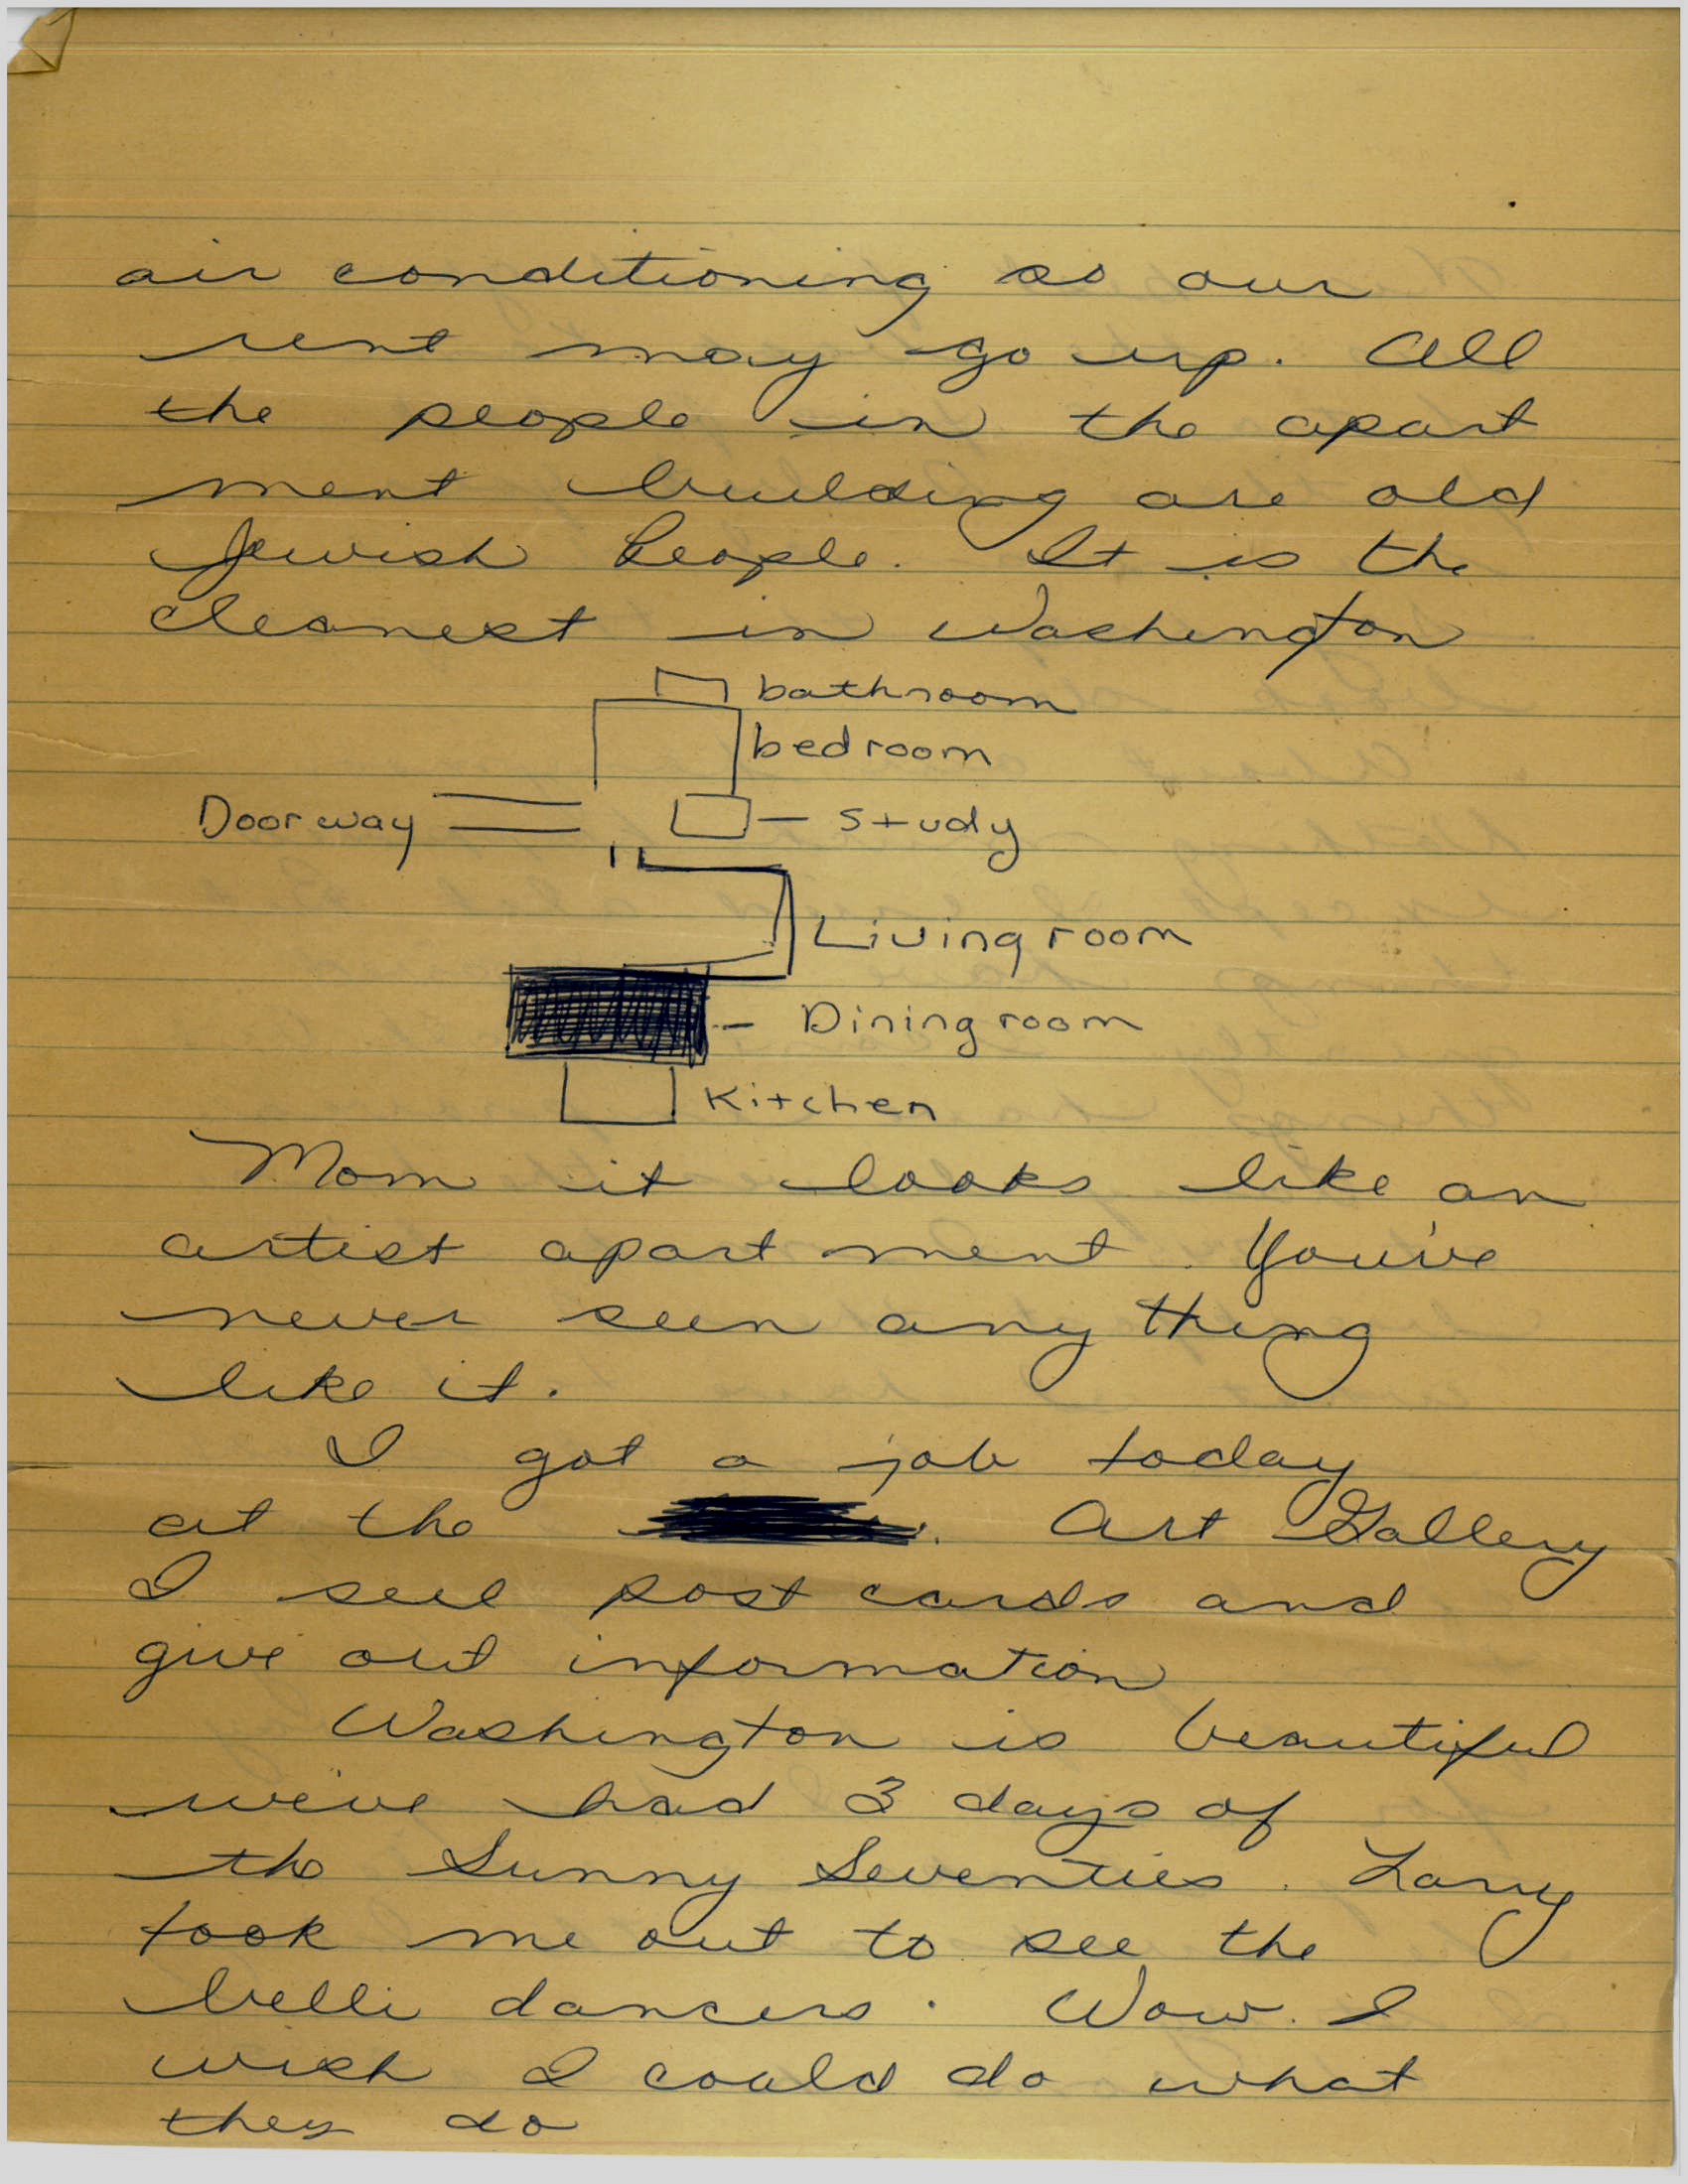 air conditioning so our
rent may go up. All
the people in the apart
ment building are old
Jewish People. It is the
cleanest in Washington
bathroom
bedroom
Doorway
- Study
Living room
- Dining room
Kitchen
Mom it looks like an
artist apart ment. You've
never seen any thing
like it.
I got a job today
at the Art Gallery
I sell post cards and
give out information
Washington is beautiful
we've had 3 days of
the Sunny Seventies. Larry
took me out to see the
belli dancers. Wow. I
wish I could do what
they do